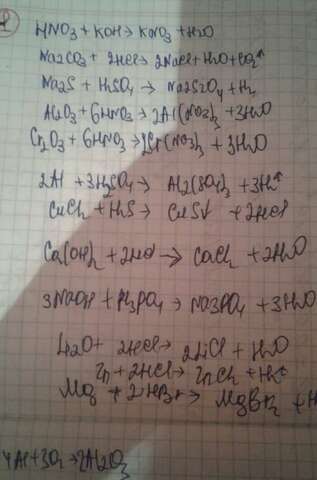 HNO3 + KOH → KNO3 + H2O
Na2CO3 + 2HCl → 2NaCl + H2O + CO2↑
Na2S + H2SO4 → Na2SO4 + H2
Al2O3 + 6HNO3 → 2Al(NO3)3 + 3H2O
Cr2O3 + 6HNO3 → 2Cr(NO3)3 + 3H2O
2Al + 3H2SO4 → Al2(SO4)3 + 3H2↑
CuCl2 + H2S → CuS↓ + 2HCl
Ca(OH)2 + 2HCl → CaCl2 + 2H2O
3NaOH + H3PO4 → Na3PO4 + 3H2O
Li2O + 2HCl → 2LiCl + H2O
Zn + 2HCl → ZnCl2 + H2↑
Mg + 2HBr → MgBr2 + H
4Al + 3O2 → 2Al2O3